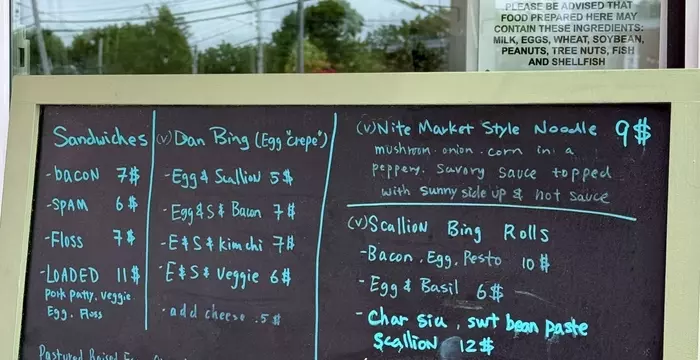 PLEASE BE ADVISED THAT
FOOD PREPARED HERE MAY
CONTAIN THESE INGREDIENTS:
MILK, EGGS, WHEAT, SOYBEAN,
PEANUTS, TREE NUTS, FISH
AND SHELLFISH
Sandwiches
- bacon 7$
- SPAM 6$
- Floss 7$
- LOADED 11$
Pork patty, veggie
Egg, Floss
(v) Dan Bing (Egg "crepe")
- Egg & Scallion 5$
- Egg & S & Bacon 7$
- E & S & Kimchi 7$
- E & S & Veggie 6$
- add cheese .5$
(v) Nite Market Style Noodle 9$
mushroom. onion. corn in a
peppery. savory sauce topped
with sunny side up & hot sauce
(v) Scallion Bing Rolls
- Bacon. Egg. Pesto 10$
- Egg & Basil 6$
- Char siu, swt bean paste
Scallion 12$
Pastured Raised